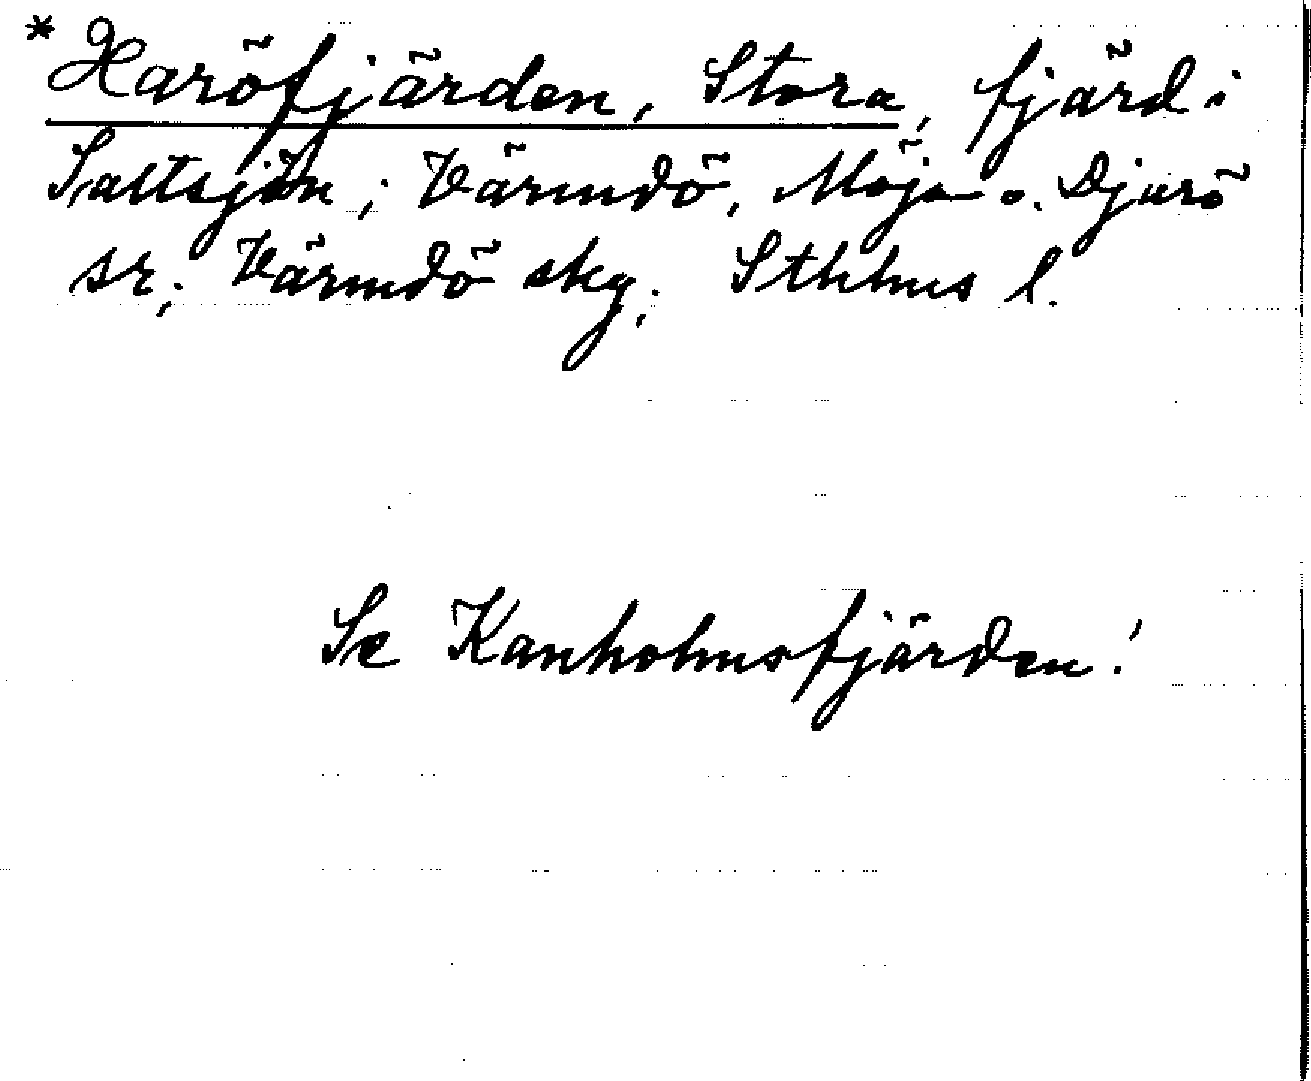 * Haröfjärden, Stora, fjärd i
Saltsjön; Värmdö, Möja o. Djurö
sr; Värmdö skg; Sthlms l.
Se Kanholmsfjärden!